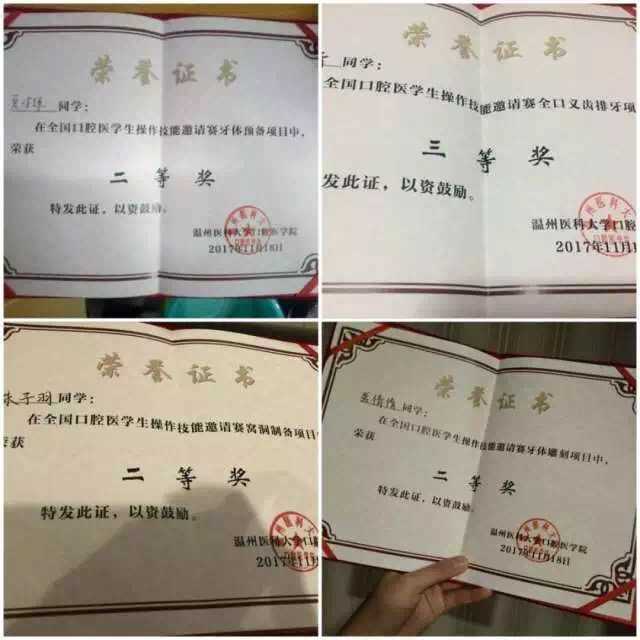 荣誉证书
同学：
在全国口腔医学生操作技能邀请赛牙体预备项目中，
荣获
二等奖
特发此证，以资鼓励。
温州医科大学口腔医学院
2017年11月18日
荣誉证书
同学：
全国口腔医学生操作技能邀请赛全口义齿排牙项
三等奖
发此证，以资鼓励。
温州医科大学口腔
2017年11月1
荣誉证书
朱子羽同学：
在全国口腔医学生操作技能邀请赛窝洞制备项目
荣获
二等奖
特发此证，以资鼓励。
温州医科大学口
2017年11月
荣誉证书
同学：
在全国口腔医学生操作技能邀请赛牙体雕刻项目中，
荣获
二等奖
特发此证，以资鼓励。
温州医科大学口腔医学院
2017年11月18日